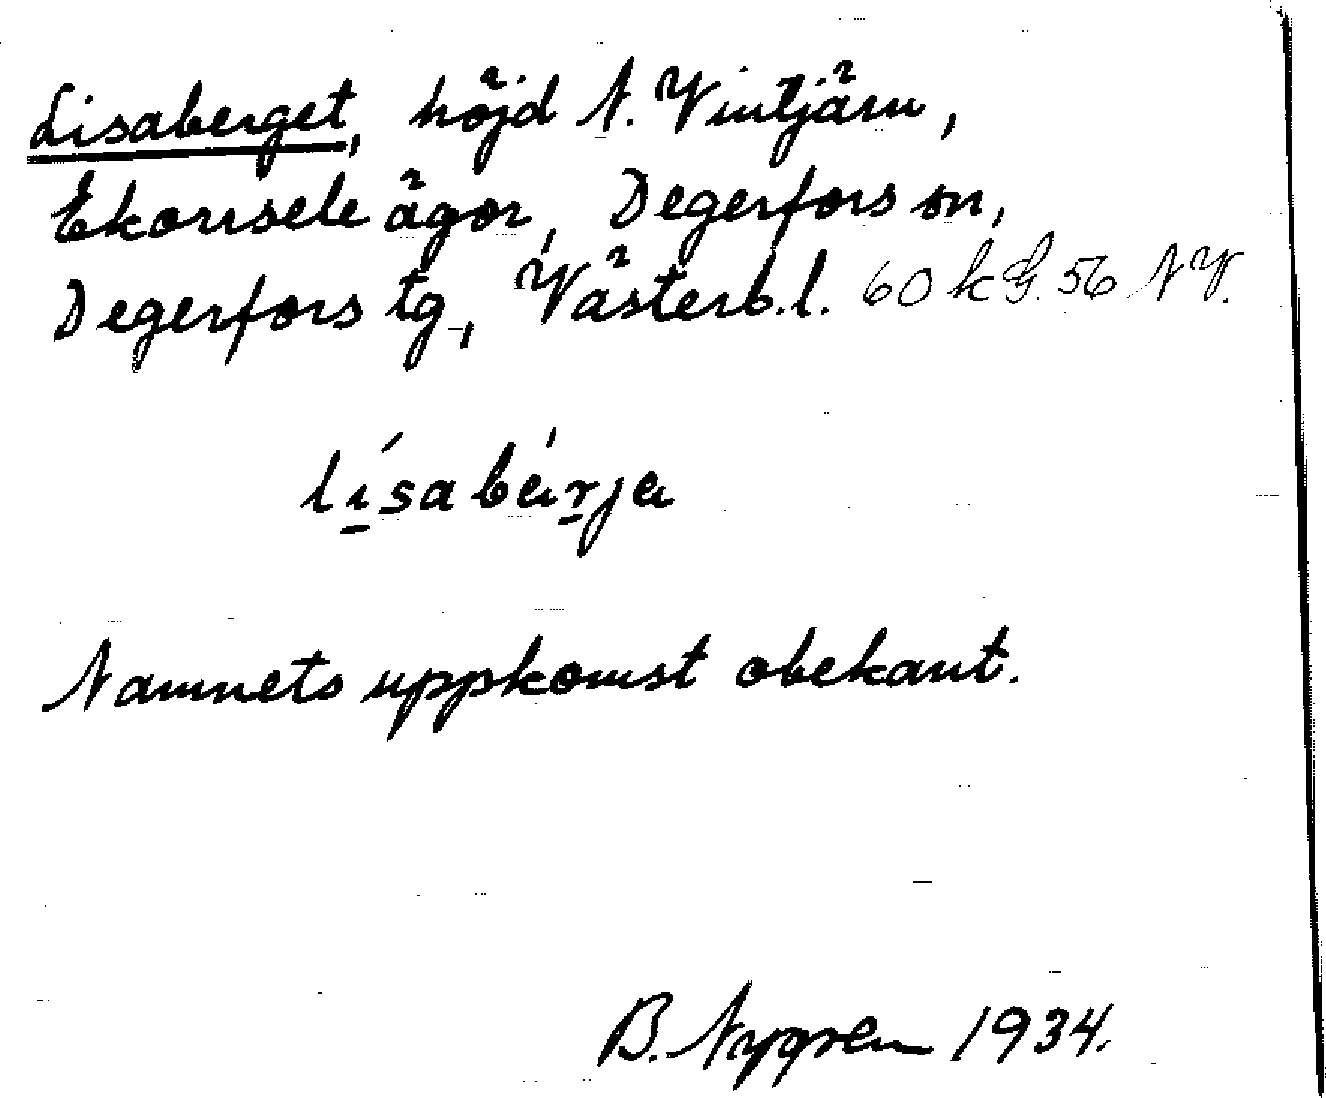 Lisaberget, höjd N. Vintjärn,
Ekorrsele ägor, Degerfors sn,
Degerfors tg, Västerb.l. 60 kG. 56 NV.
lísabárja
Namnets uppkomst obekant.
B. Nygren 1934.